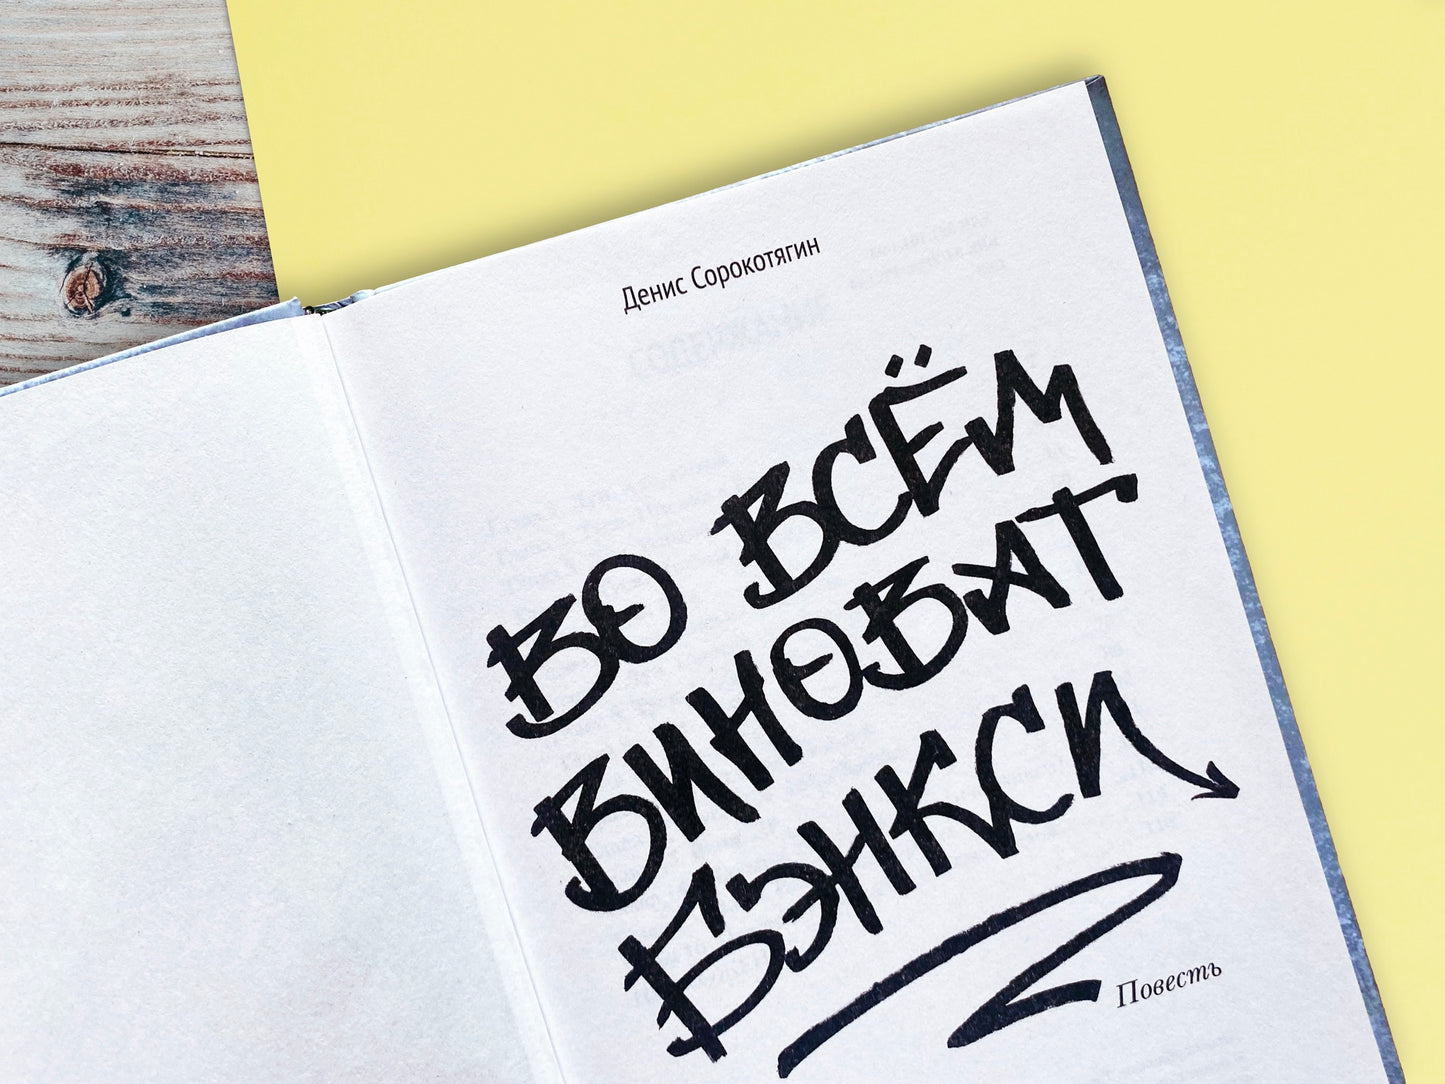 Денис Сорокотягин
ВО ВСЁМ
ВИНОВАТ
БЭНКСИ
Повесть